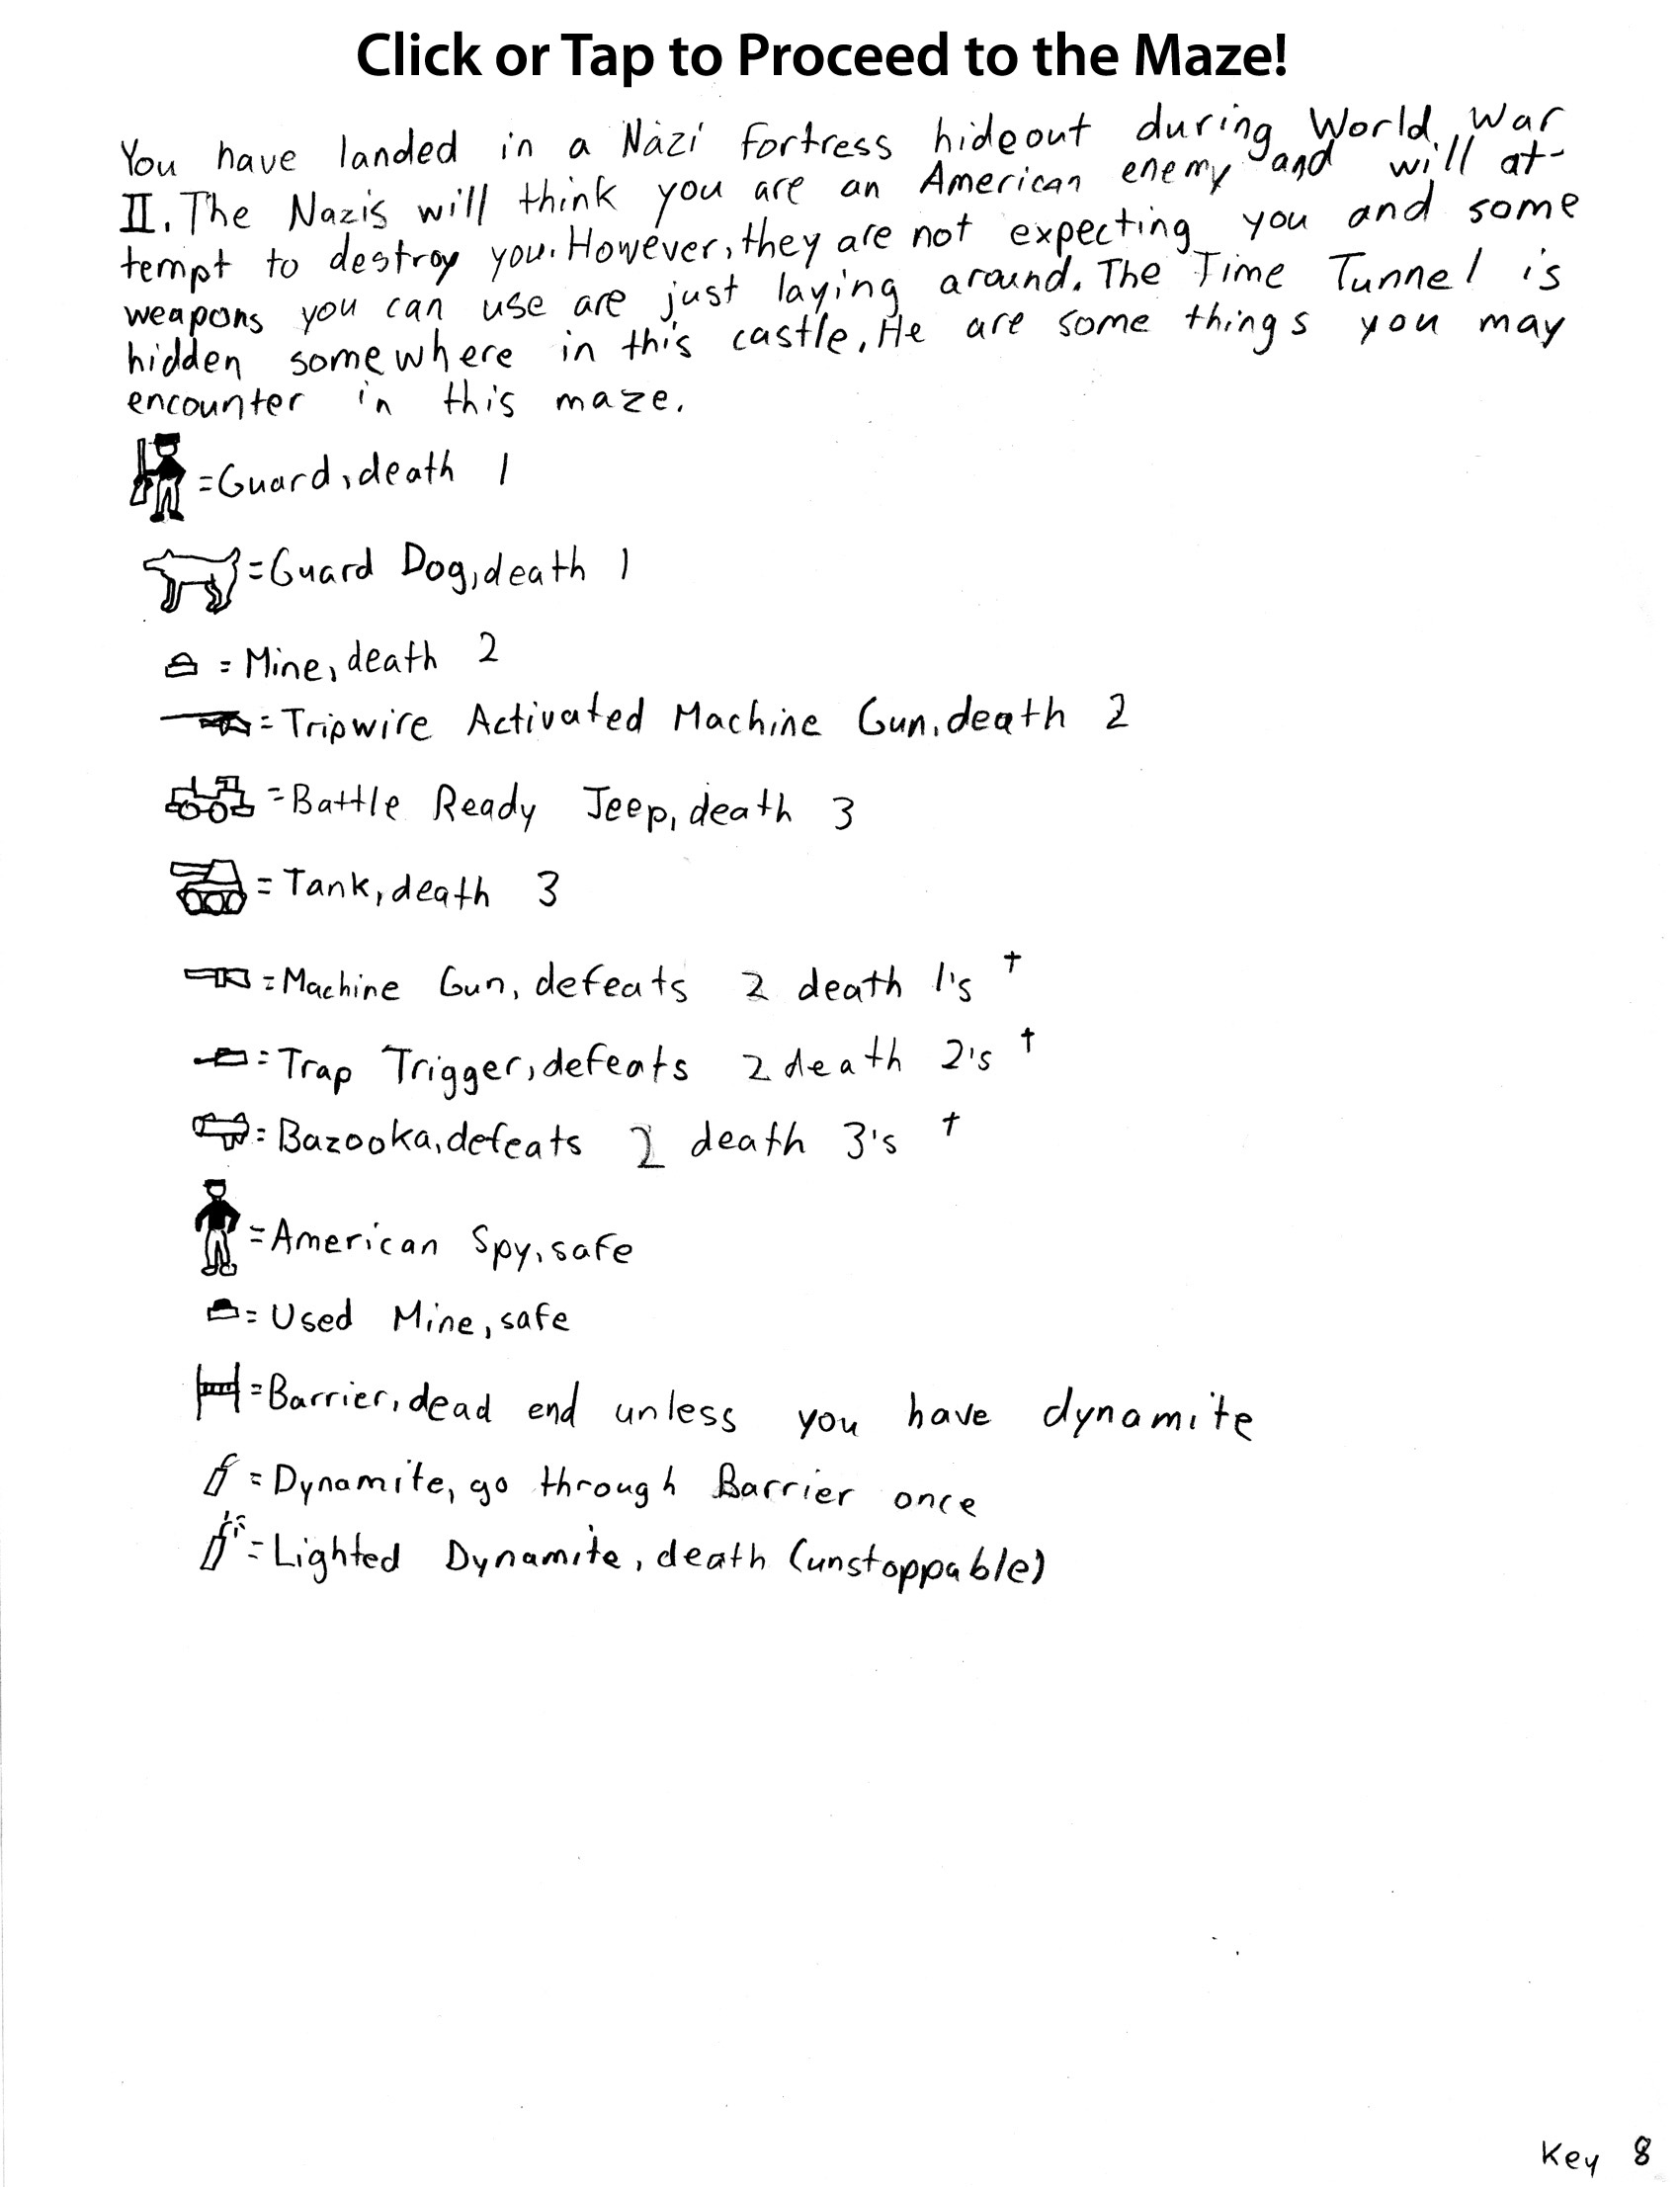 Click or Tap to Proceed to the Maze!
You have landed in a Nazi fortress hideout during World War
II. The Nazis will think you are an American enemy and will at-
tempt to destroy you. However, they are not expecting you and some
weapons you can use are just laying around. The Time Tunnel is
hidden somewhere in this castle. He are some things you may
encounter in this maze.
=Guard, death 1
=Guard Dog, death 1
=Mine, death 2
=Tripwire Activated Machine Gun, death 2
=Battle Ready Jeep, death 3
=Tank, death 3
=Machine Gun, defeats 2 death 1's †
=Trap Trigger, defeats 2 death 2's †
=Bazooka, defeats 2 death 3's †
=American Spy, safe
=Used Mine, safe
=Barrier, dead end unless you have dynamite
=Dynamite, go through Barrier once
=Lighted Dynamite, death (unstoppable)
Key 8